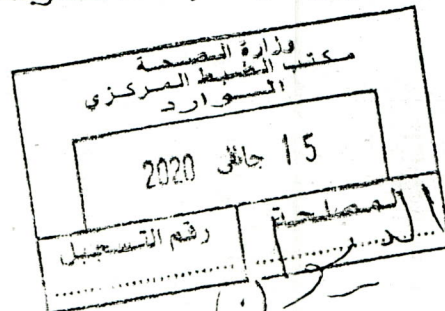 وزارة الصحة
مكتب الضبط المركزي
السوارد
15 جانفي 2020
المصلحة
رقم التسجيل